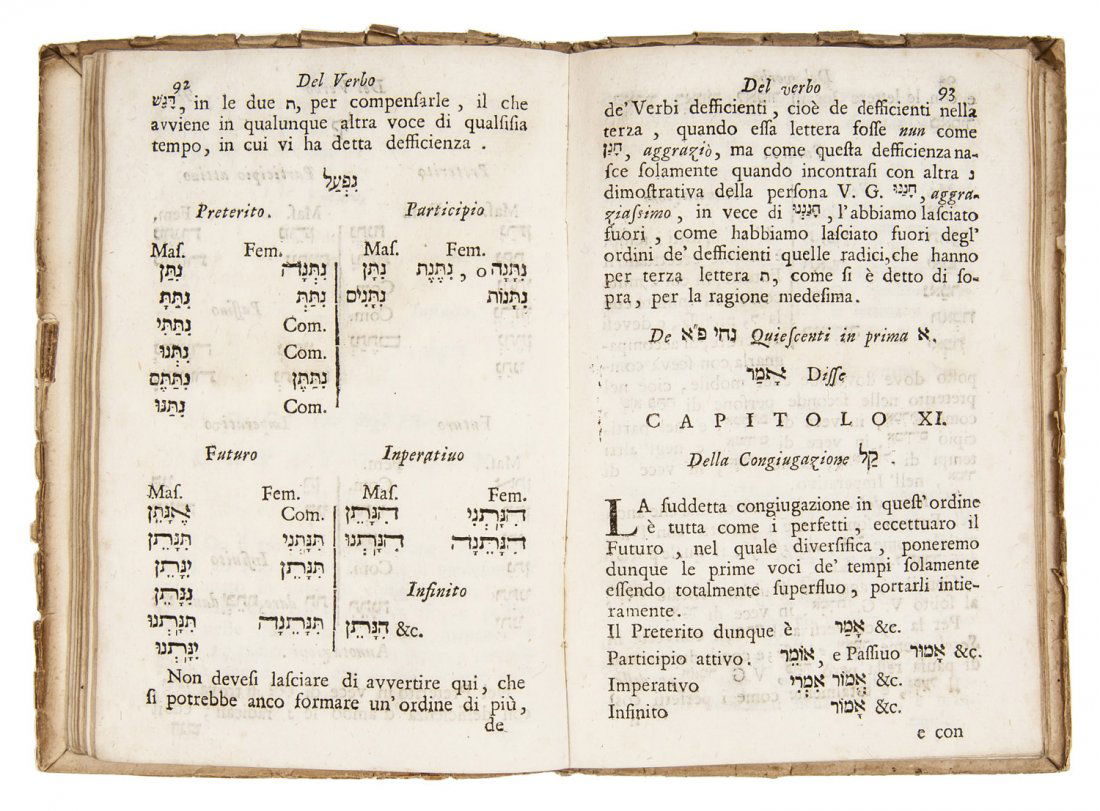 92
Del Verbo
דָּגֵשׁ, in le due ת, per compenſarle, il che
avviene in qualunque altra voce di qualſiſia
tempo, in cui vi ha detta defficienza.
נִפְעַל
Preterito. Participio
Maſ. Fem. Maſ. Fem.
נִתַּן נִתְּנָה נִתָּן נִתֶּנֶת, o נִתָּנָה
נִתַּתָּ נִתַּתְּ נִתָּנִים נִתָּנוֹת
נִתַּתִּי Com.
נִתְּנוּ Com.
נִתַּתֶּם נִתַּתֶּן
נִתַּנּוּ Com.
Futuro Inperatiuo
Maſ. Fem. Maſ. Fem.
אֶנָּתֵן Com. הִנָּתֵן הִנָּתְנִי
תִּנָּתֵן תִּנָּתְנִי הִנָּתְנוּ הִנָּתֵנָה
יִנָּתֵן תִּנָּתֵן
נִנָּתֵן Infinito
תִּנָּתְנוּ תִּנָּתֵנָה הִנָּתֵן &c.
יִנָּתְנוּ
Non deveſi laſciare di avvertire qui, che
ſi potrebbe anco formare un'ordine di più,
de
Del verbo
93
de' Verbi defficienti, cioè de defficienti nella
terza, quando eſſa lettera foſſe nun come
חָנַן, aggraziò, ma come queſta defficienza na-
ſce ſolamente quando incontraſi con altra נ
dimoſtrativa della perſona V. G. חָנַנּוּ, aggra-
ziaſſimo, in vece di חָנַנְנוּ, l'abbiamo laſciato
fuori, come habbiamo laſciato fuori degl'
ordini de' defficienti quelle radici, che hanno
per terza lettera ת, come ſi è detto di ſo-
pra, per la ragione medeſima.
De נחי פ״א Quieſcenti in prima א.
אָמַר Diſſe
CAPITOLO XI.
Della Congiugazione קַל.
LA ſuddetta congiugazione in queſt'ordine
è tutta come i perfetti, eccettuaro il
Futuro, nel quale diverſifica, poneremo
dunque le prime voci de' tempi ſolamente
eſſendo totalmente ſuperfluo, portarli intie-
ramente.
Il Preterito dunque è אָמַר &c.
Participio attivo. אוֹמֵר, e Paſſiuo אָמוּר &c.
Imperativo אֱמוֹר אִמְרִי &c.
Infinito אָמוֹר &c.
e con